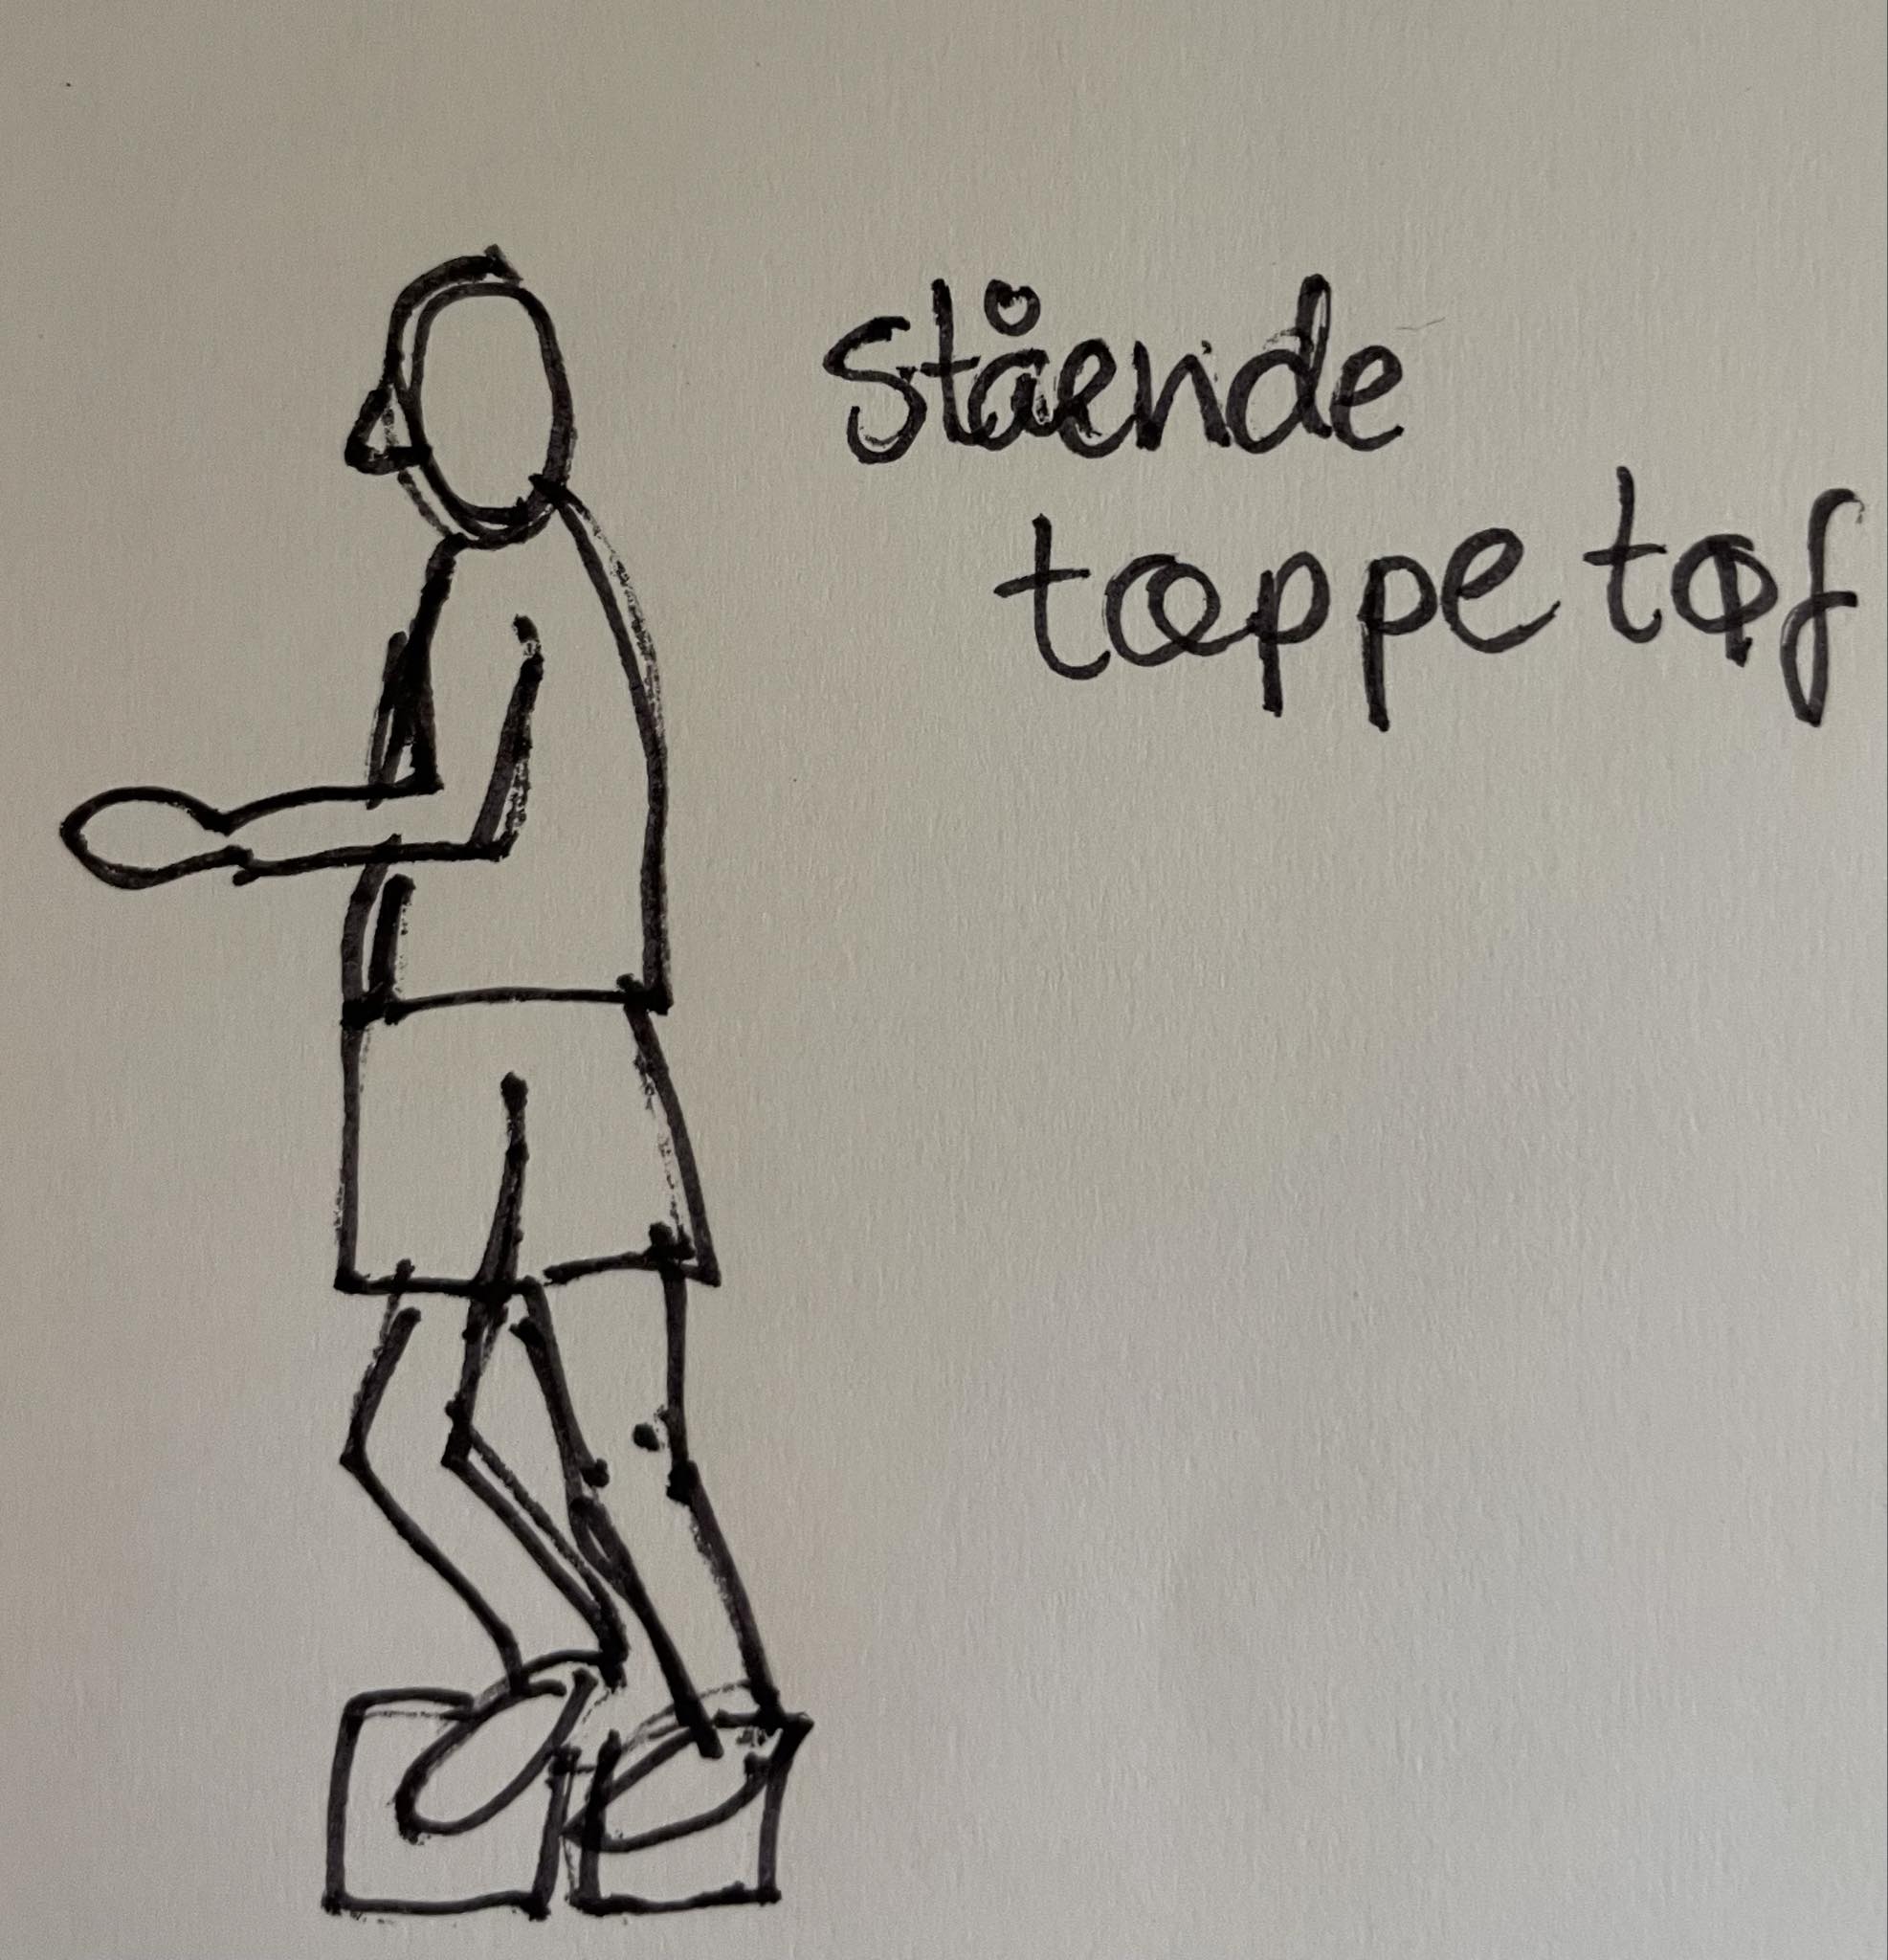 Stående
tæppe tøf